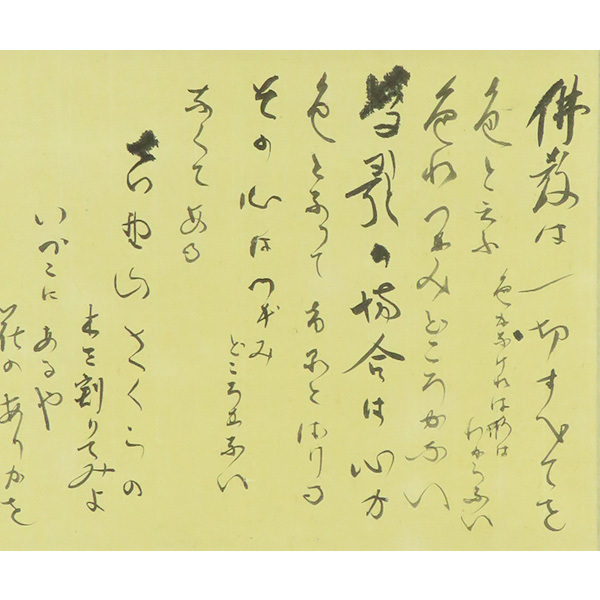 佛教は一切すべてを
色と云ふ
色がなければ形は
わからない
色はつかみどころがない
の場合は心が
色となつて
その心はつかみ
どころがない
なくてある
吉野山さくらの
木を割りてみよ
いづこにあるや
花のありかを